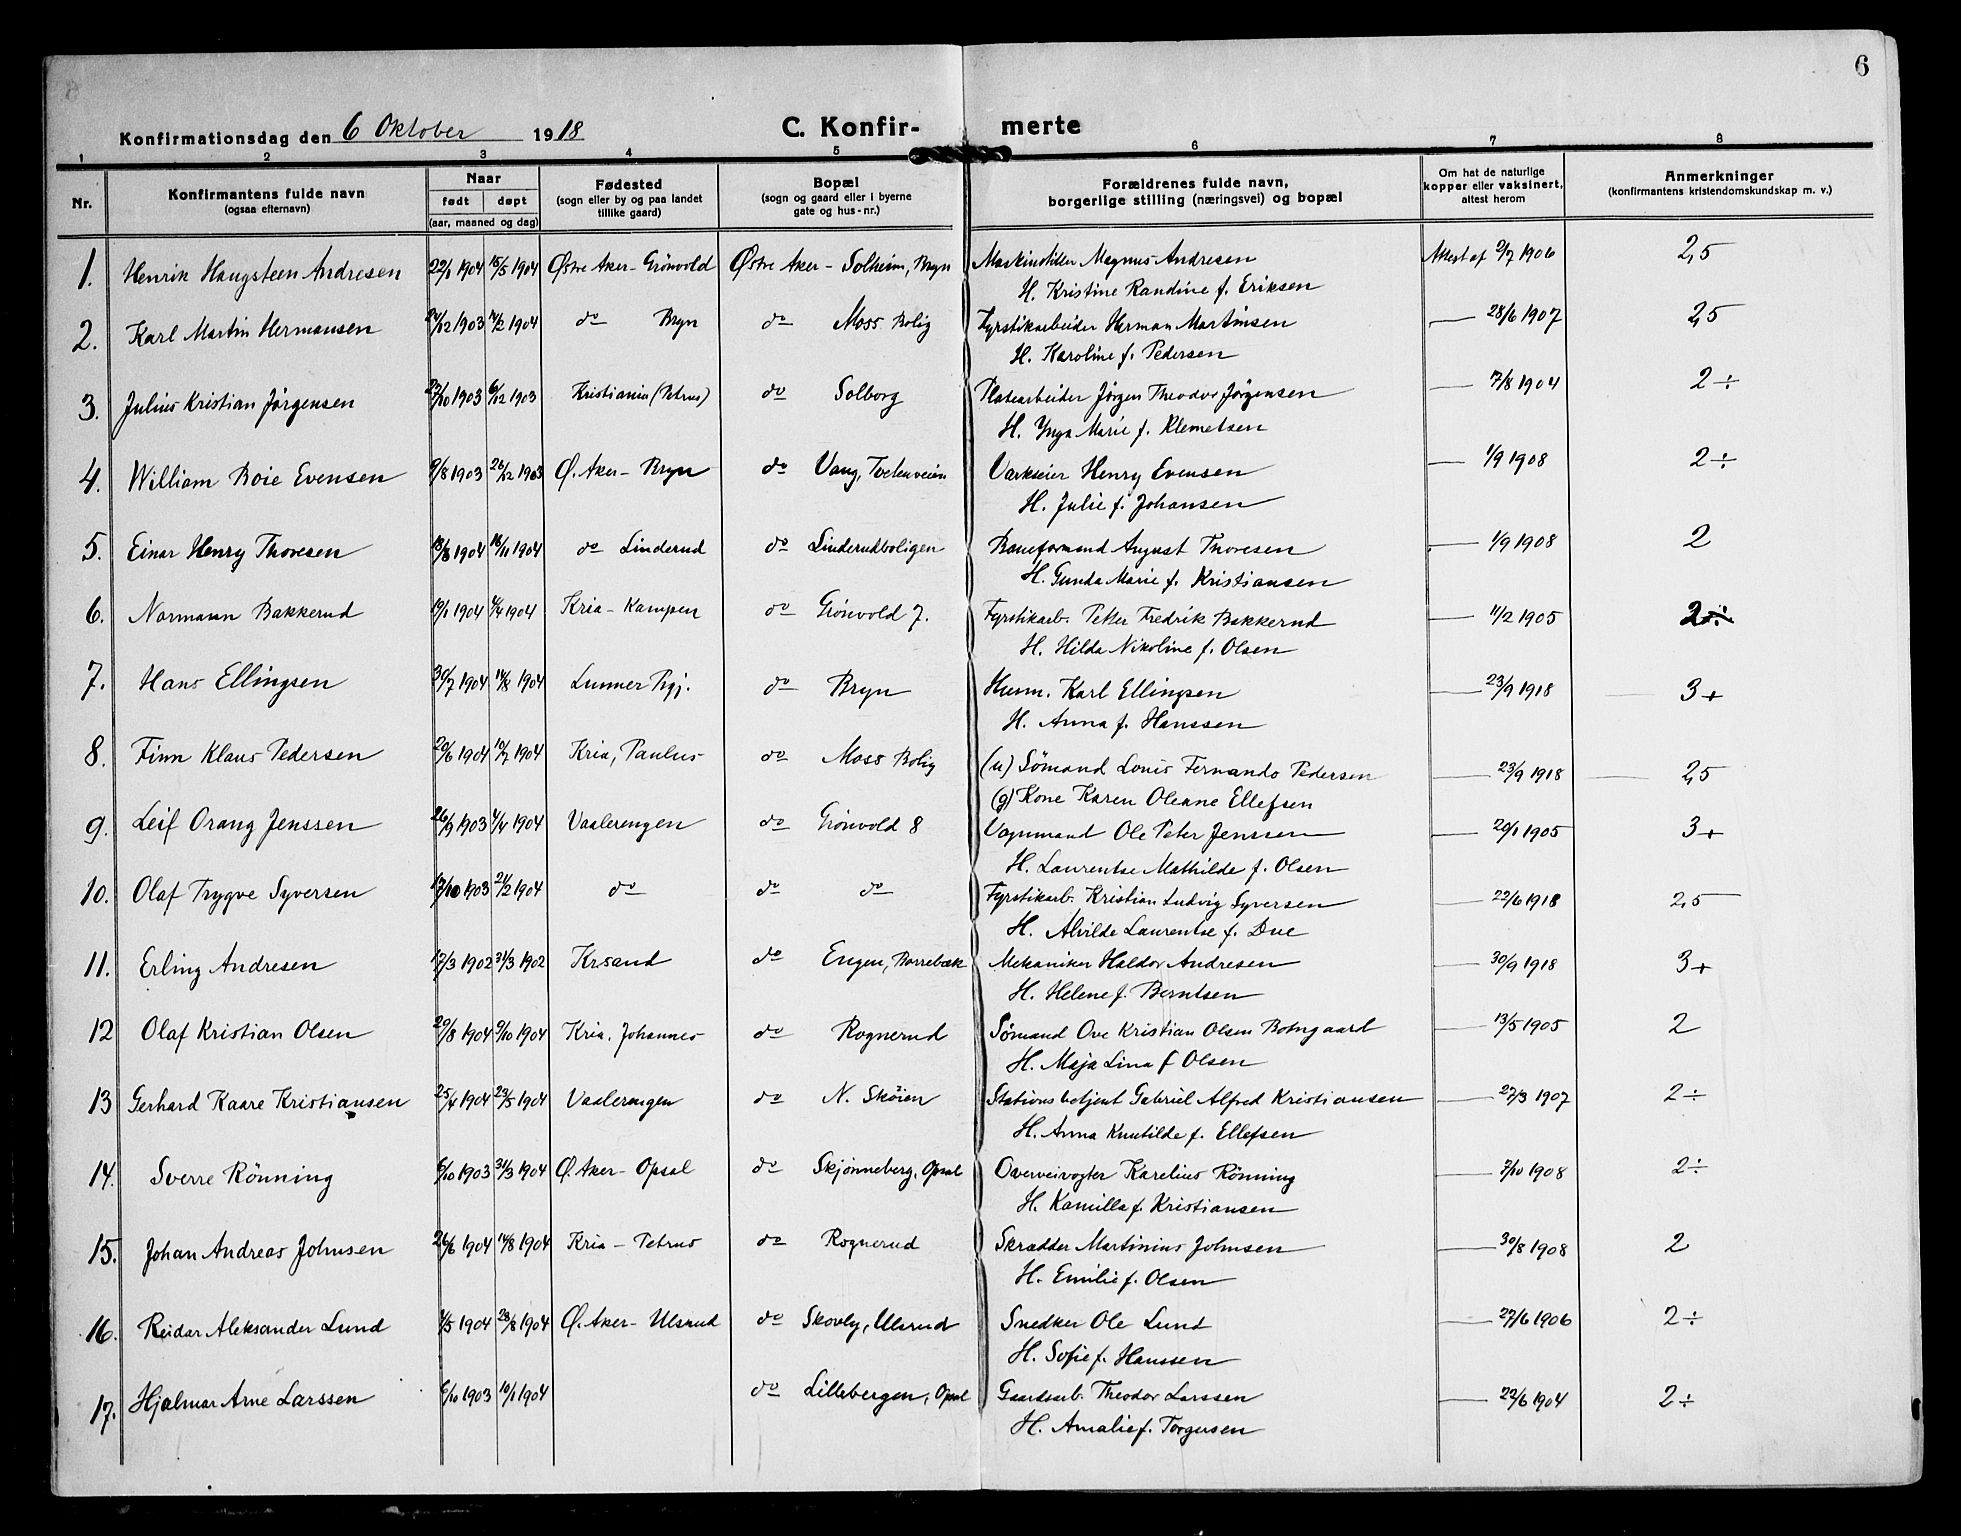 6
Konfirmationsdag den 6 Oktober 1918 C. Konfir- merte
1 2 3 4 5 6 7 8
Nr. Konfirmantens fulde navn (ogsaa efternavn) Naar født døpt (aar, maaned og dag) Fødested (sogn eller by og paa landet tillike gaard) Bopæl (sogn og gaard eller i byerne gate og hus-nr.) Forældrenes fulde navn, borgerlige stilling (næringsvei) og bopæl Om hat de naturlige kopper eller vaksinert, attest herom Anmerkninger (konfirmantens kristendomskundskap m. v.)
1. Henrik Haugsteen Andresen 22/1 1904 15/5 1904 Østre Aker - Grönvold Østre Aker - Solheim, Bryn Maskinstiller Magnus Andresen Attest af 2/7 1906 2,5
H. Kristine Randine f. Eriksen
2. Karl Martin Hermansen 24/12 1903 14/2 1904 do Bryn do Moss Bolig Fyrstikarbeider Herman Martinsen — 28/6 1907 2,5
H. Karoline f. Pedersen
3. Julius Kristian Jørgensen 23/10 1903 6/12 1903 Kristiania (Petrus) do Solborg Platearbeider Jørgen Theodor Jørgensen — 7/8 1904 2 ÷
H. Ynga Marie f. Klemetsen
4. William Boie Evensen 9/8 1903 26/12 1903 Ø. Aker - Bryn do Vang, Tvetenveien Værkseier Henry Evensen — 1/9 1908 2 ÷
H. Julie f. Johansen
5. Einar Henry Thoresen 13/8 1904 16/11 1904 do Linderud do Linderudboligen Baneformand August Thoresen — 1/9 1908 2
H. Gunda Marie f. Kristiansen
6. Normann Bakkerud 19/1 1904 4/4 1904 Kria - Kampen do Grönvold 7. Fyrstikarb. Petter Fredrik Bakkerud — 11/2 1905 2 ÷
H. Hilda Nikoline f. Olsen
7. Hans Ellingsen 30/7 1904 14/8 1904 Lunner Prgj. do Bryn Husm. Karl Ellingsen — 23/9 1918 3+
H. Anna f. Hanssen
8. Finn Klaus Pedersen 20/6 1904 10/7 1904 Kria, Paulus do Moss Bolig (u) Sømand Louis Fernando Pedersen — 23/9 1918 2,5
(g) Kone Karen Oleane Ellefsen
9. Leif Orang Jenssen 26/9 1903 4/4 1904 Vaalerengen do Grönvold 8 Vognmand Ole Peter Jenssen — 20/1 1905 3+
H. Laurentse Mathilde f. Olsen
10. Olaf Trygve Syversen 17/10 1903 21/2 1904 do do do Fyrstikarb. Kristian Ludvig Syversen — 22/6 1918 2,5
H. Alvilde Laurentse f. Due
11. Erling Andresen 17/3 1902 31/3 1902 Krsand do Engen, Borrebæk Mekaniker Haldor Andresen — 30/9 1918 3+
H. Helene f. Berntsen
12 Olaf Kristian Olsen 20/8 1904 9/10 1904 Kria. Johannes do Rognerud Sømand Ove Kristian Olsen Botngaard — 13/5 1905 2
H. Maja Lina f Olsen
13 Gerhard Kaare Kristiansen 25/4 1904 23/5 1904 Vaalerengen do N. Skøien Stationsbetjent Gabriel Alfred Kristiansen — 27/3 1907 2 ÷
H. Anna Knutilde f. Ellefsen
14. Sverre Rönning 6/10 1903 31/3 1904 Ø. Aker - Opsal do Skjønneberg, Opsal Overveivogter Karelius Rönning — 7/10 1908 2 ÷
H. Kamilla f. Kristiansen
15. Johan Andreas Johnsen 26/6 1904 14/8 1904 Kria - Petrus do Rognerud Skrædder Martinius Johnsen — 30/8 1908 2
H. Emilie f. Olsen
16. Reidar Aleksander Lund 1/5 1904 28/8 1904 Ø. Aker - Ulsrud do Skovly, Ulsrud Snedker Ole Lund — 27/6 1906 2 ÷
H. Sofie f. Hanssen
17. Hjalmar Arne Larssen 6/10 1903 10/1 1904 do Lillebergen, Opsal Gaardsarb. Theodor Larssen — 22/6 1904 2 ÷
H. Amalie f. Torgersen